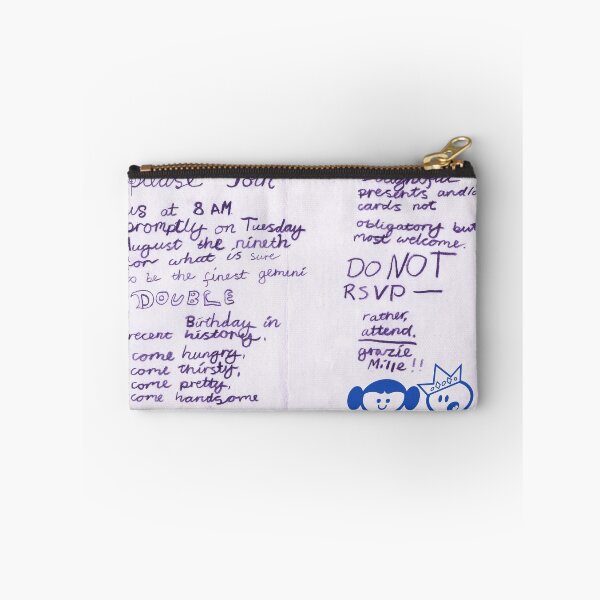 please Join
us at 8 AM
promptly on Tuesday
August the nineth
for what is sure
to be the finest gemini
DOUBLE
Birthday in
recent history.
come hungry,
come thirsty,
come pretty,
come handsome
presents and/o
cards not
obligatory but
most welcome.
DO NOT
RSVP —
rather,
attend.
grazie
Mille!!